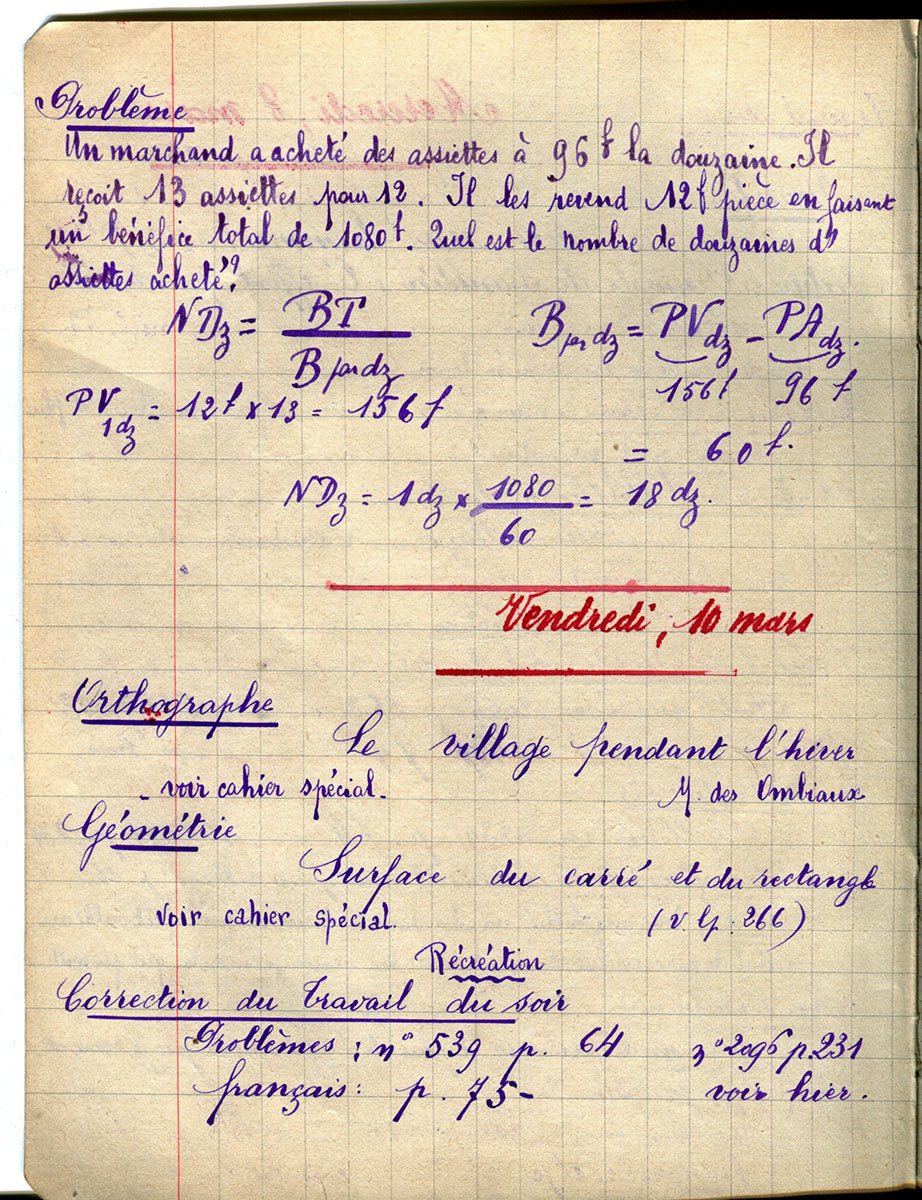 Problème
Un marchand a acheté des assiettes à 96 f la douzaine. Il
reçoit 13 assiettes pour 12. Il les revend 12f pièce en faisant
un bénéfice total de 1080 f. Quel est le nombre de douzaines d'
assiettes acheté?
NDz = BT / B par dz
B par dz = PV dz - PA dz.
156 f 96 f
PV 1dz = 12 f × 13 = 156 f
= 60 f.
NDz = 1 dz × 1080 / 60 = 18 dz.
Vendredi, 10 mars
Orthographe
Le village pendant l'hiver
- voir cahier spécial. M. des Ombiaux
Géométrie
Surface du carré et du rectangle
voir cahier spécial. (v. lp: 266)
Récréation
Correction du travail du soir
Problèmes: n° 539 p. 64 n° 2096 p. 231
français: p. 75- voir hier.